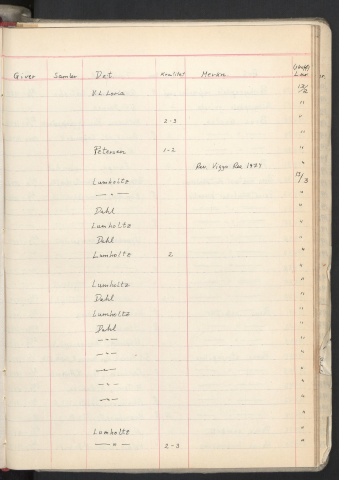 Giver Samler Det Kvalitet Merkn. Lnr.
V. L. Loria 13/2
"
2-3 "
"
Petersen 1-2 "
Rev. Viggo Ree 1974 "
Lumholtz 13/3
— " — "
Dahl "
Lumholtz "
Dahl "
Lumholtz 2 "
"
Lumholtz "
Dahl "
Lumholtz "
Dahl "
— " — "
— " — "
— " — "
— " — "
— " — "
"
Lumholtz "
— " — 2-3 "